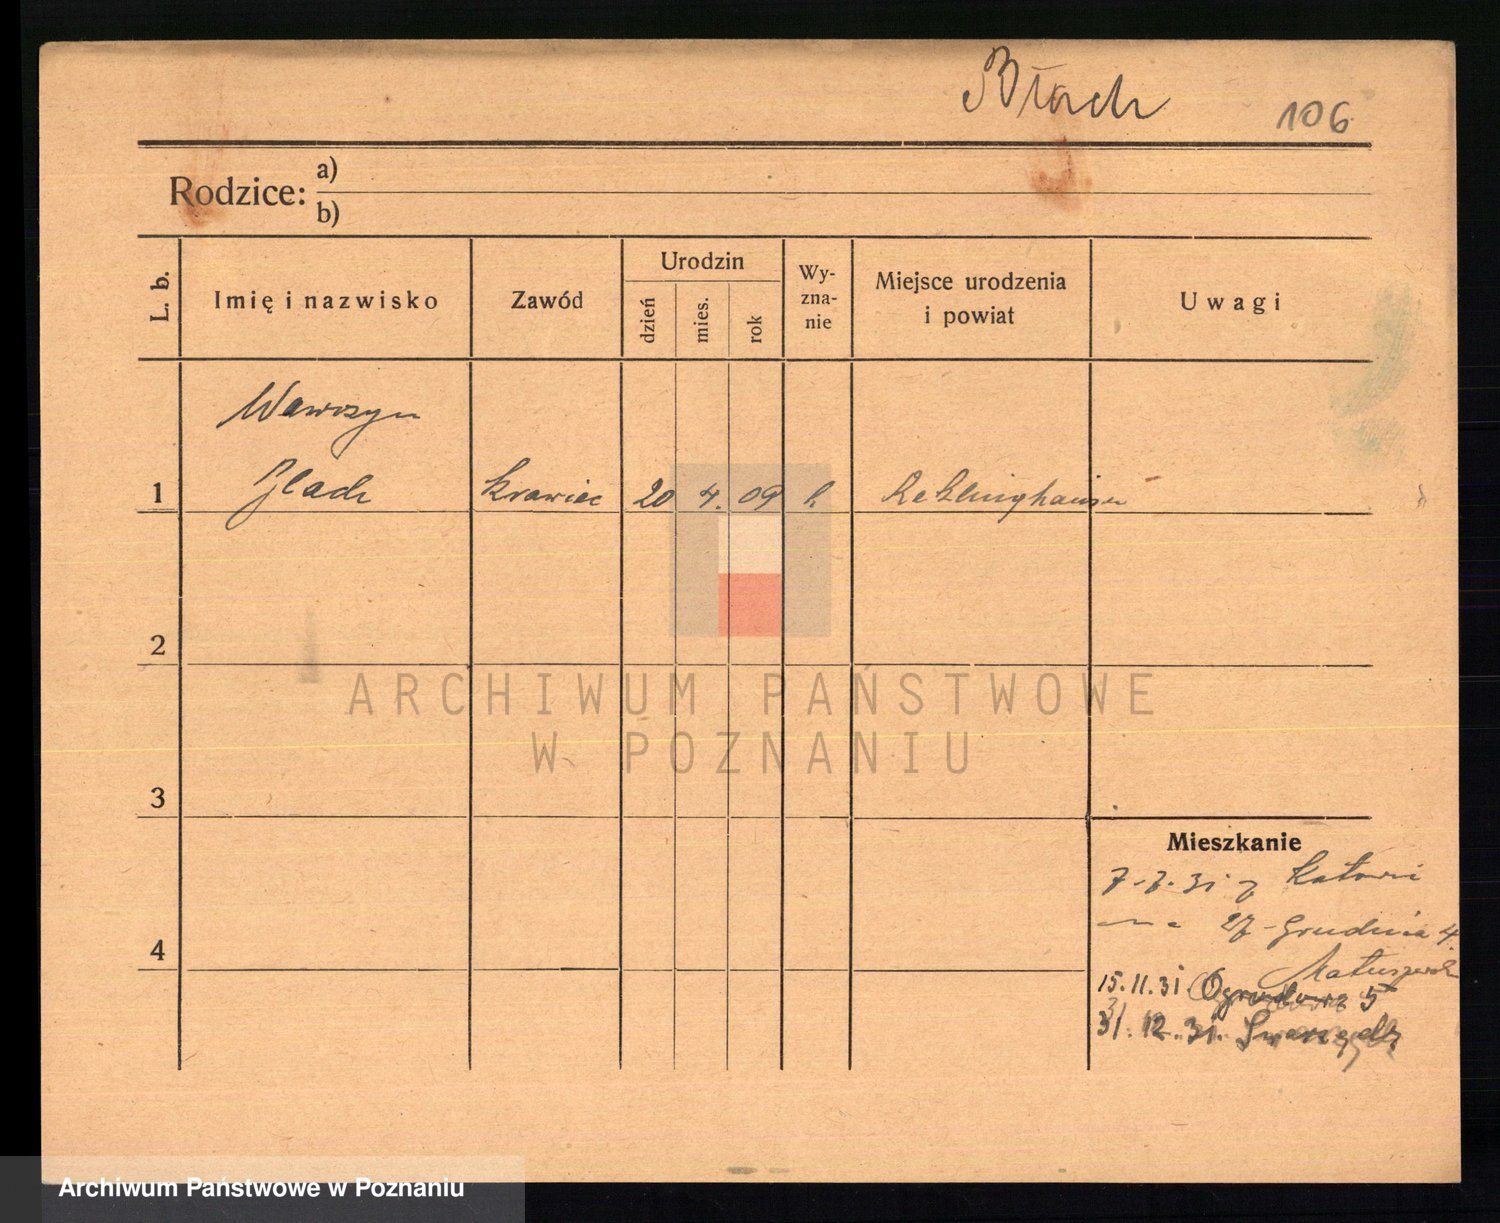 Błach 106
Rodzice: a)
b)
L. b. Imię i nazwisko Zawód Urodzin dzień mies. rok Wy-zna-nie Miejsce urodzenia i powiat Uwagi
Wawrzyn
1 krawiec 20 4. 09 Reklinghausen
2
ARCHIWUM PAŃSTWOWE
W POZNANIU
3
Mieszkanie
31 z Katowic
27-Grudnia 4.
4
15.11.31 Ogrodowa 5
31.12.31. Swarzędz
Archiwum Państwowe w Poznaniu